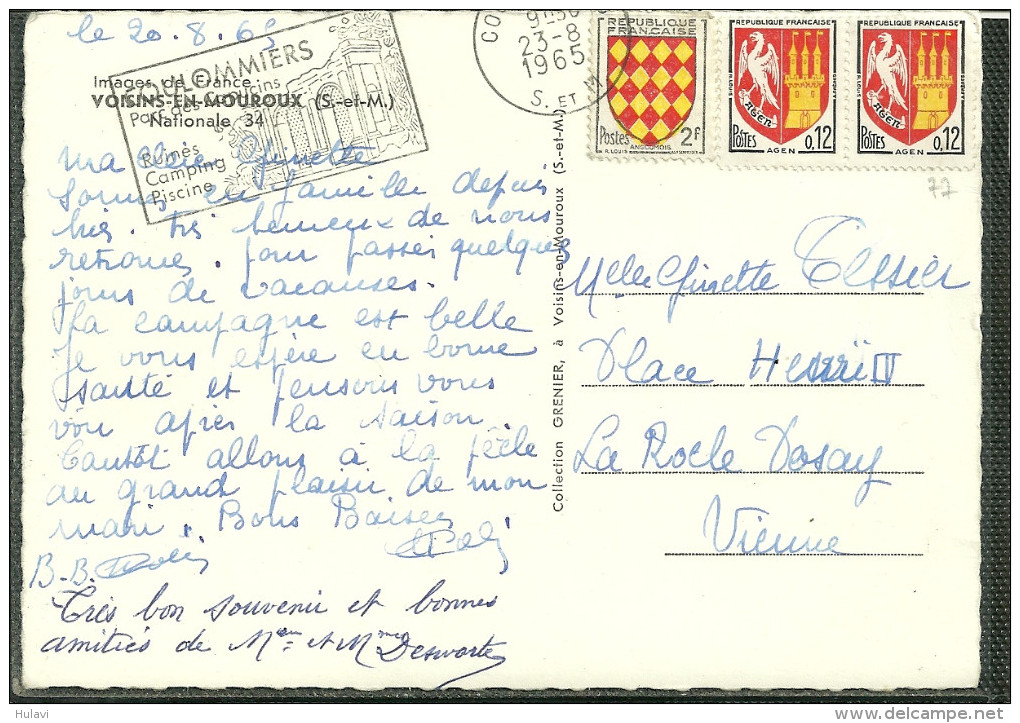 le 20.8.65
COULOMMIERS
Ruines
Camping
Piscine
Images de France :
VOISINS-EN-MOUROUX (S.-et-M.)
Nationale 34
9H30
23-8
1965
S. ET M
REPUBLIQUE FRANÇAISE
Postes 2F
ANGOUMOIS
REPUBLIQUE FRANÇAISE
AGEN
POSTES 0,12
AGEN
REPUBLIQUE FRANÇAISE
AGEN
POSTES 0,12
AGEN
77
ma chère Ginette
Sommes en famille depuis
hier. très heureux de nous
retrouver. pour passer quelques
jours de vacances.
La campagne est belle
Je vous espère en bonne
santé et pensons vous
voir après la saison.
Tantôt allons à la pêche
au grand plaisir de mon
mari. Bons Baisers
B.B.
Très bon souvenir et bonnes
amitiés de Mr et Mme Desworte
Collection GRENIER, à Voisins-en-Mouroux (S.-et-M.)
Melle Ginette Tessier
Place Henri IV
La Roche Posay
Vienne
Hulavi
delcampe.net